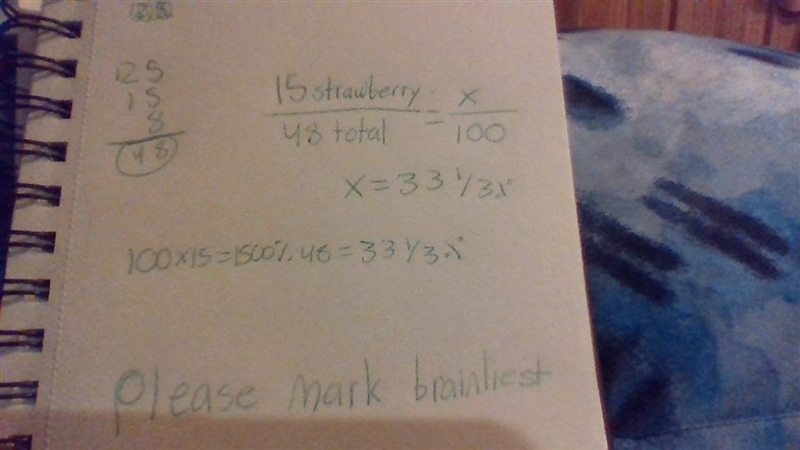 25
25
15
8
48
15 strawberry = x
48 total 100
x = 33 1/3%
100x15=1500÷48=33 1/3%
Please mark brainliest